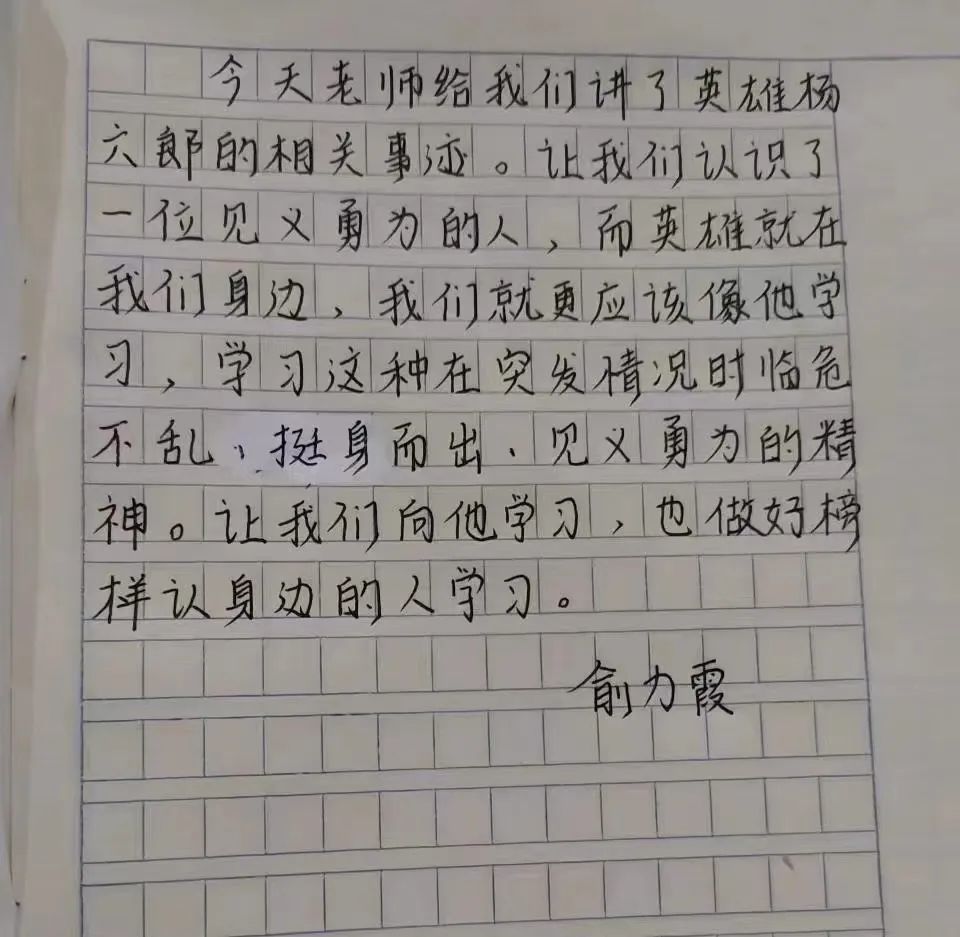 今天老师给我们讲了英雄杨
六郎的相关事迹。让我们认识了
一位见义勇为的人，而英雄就在
我们身边，我们就更应该像他学
习，学习这种在突发情况时临危
不乱、挺身而出、见义勇为的精
神。让我们向他学习，也做好榜
样认身边的人学习。
俞力霞